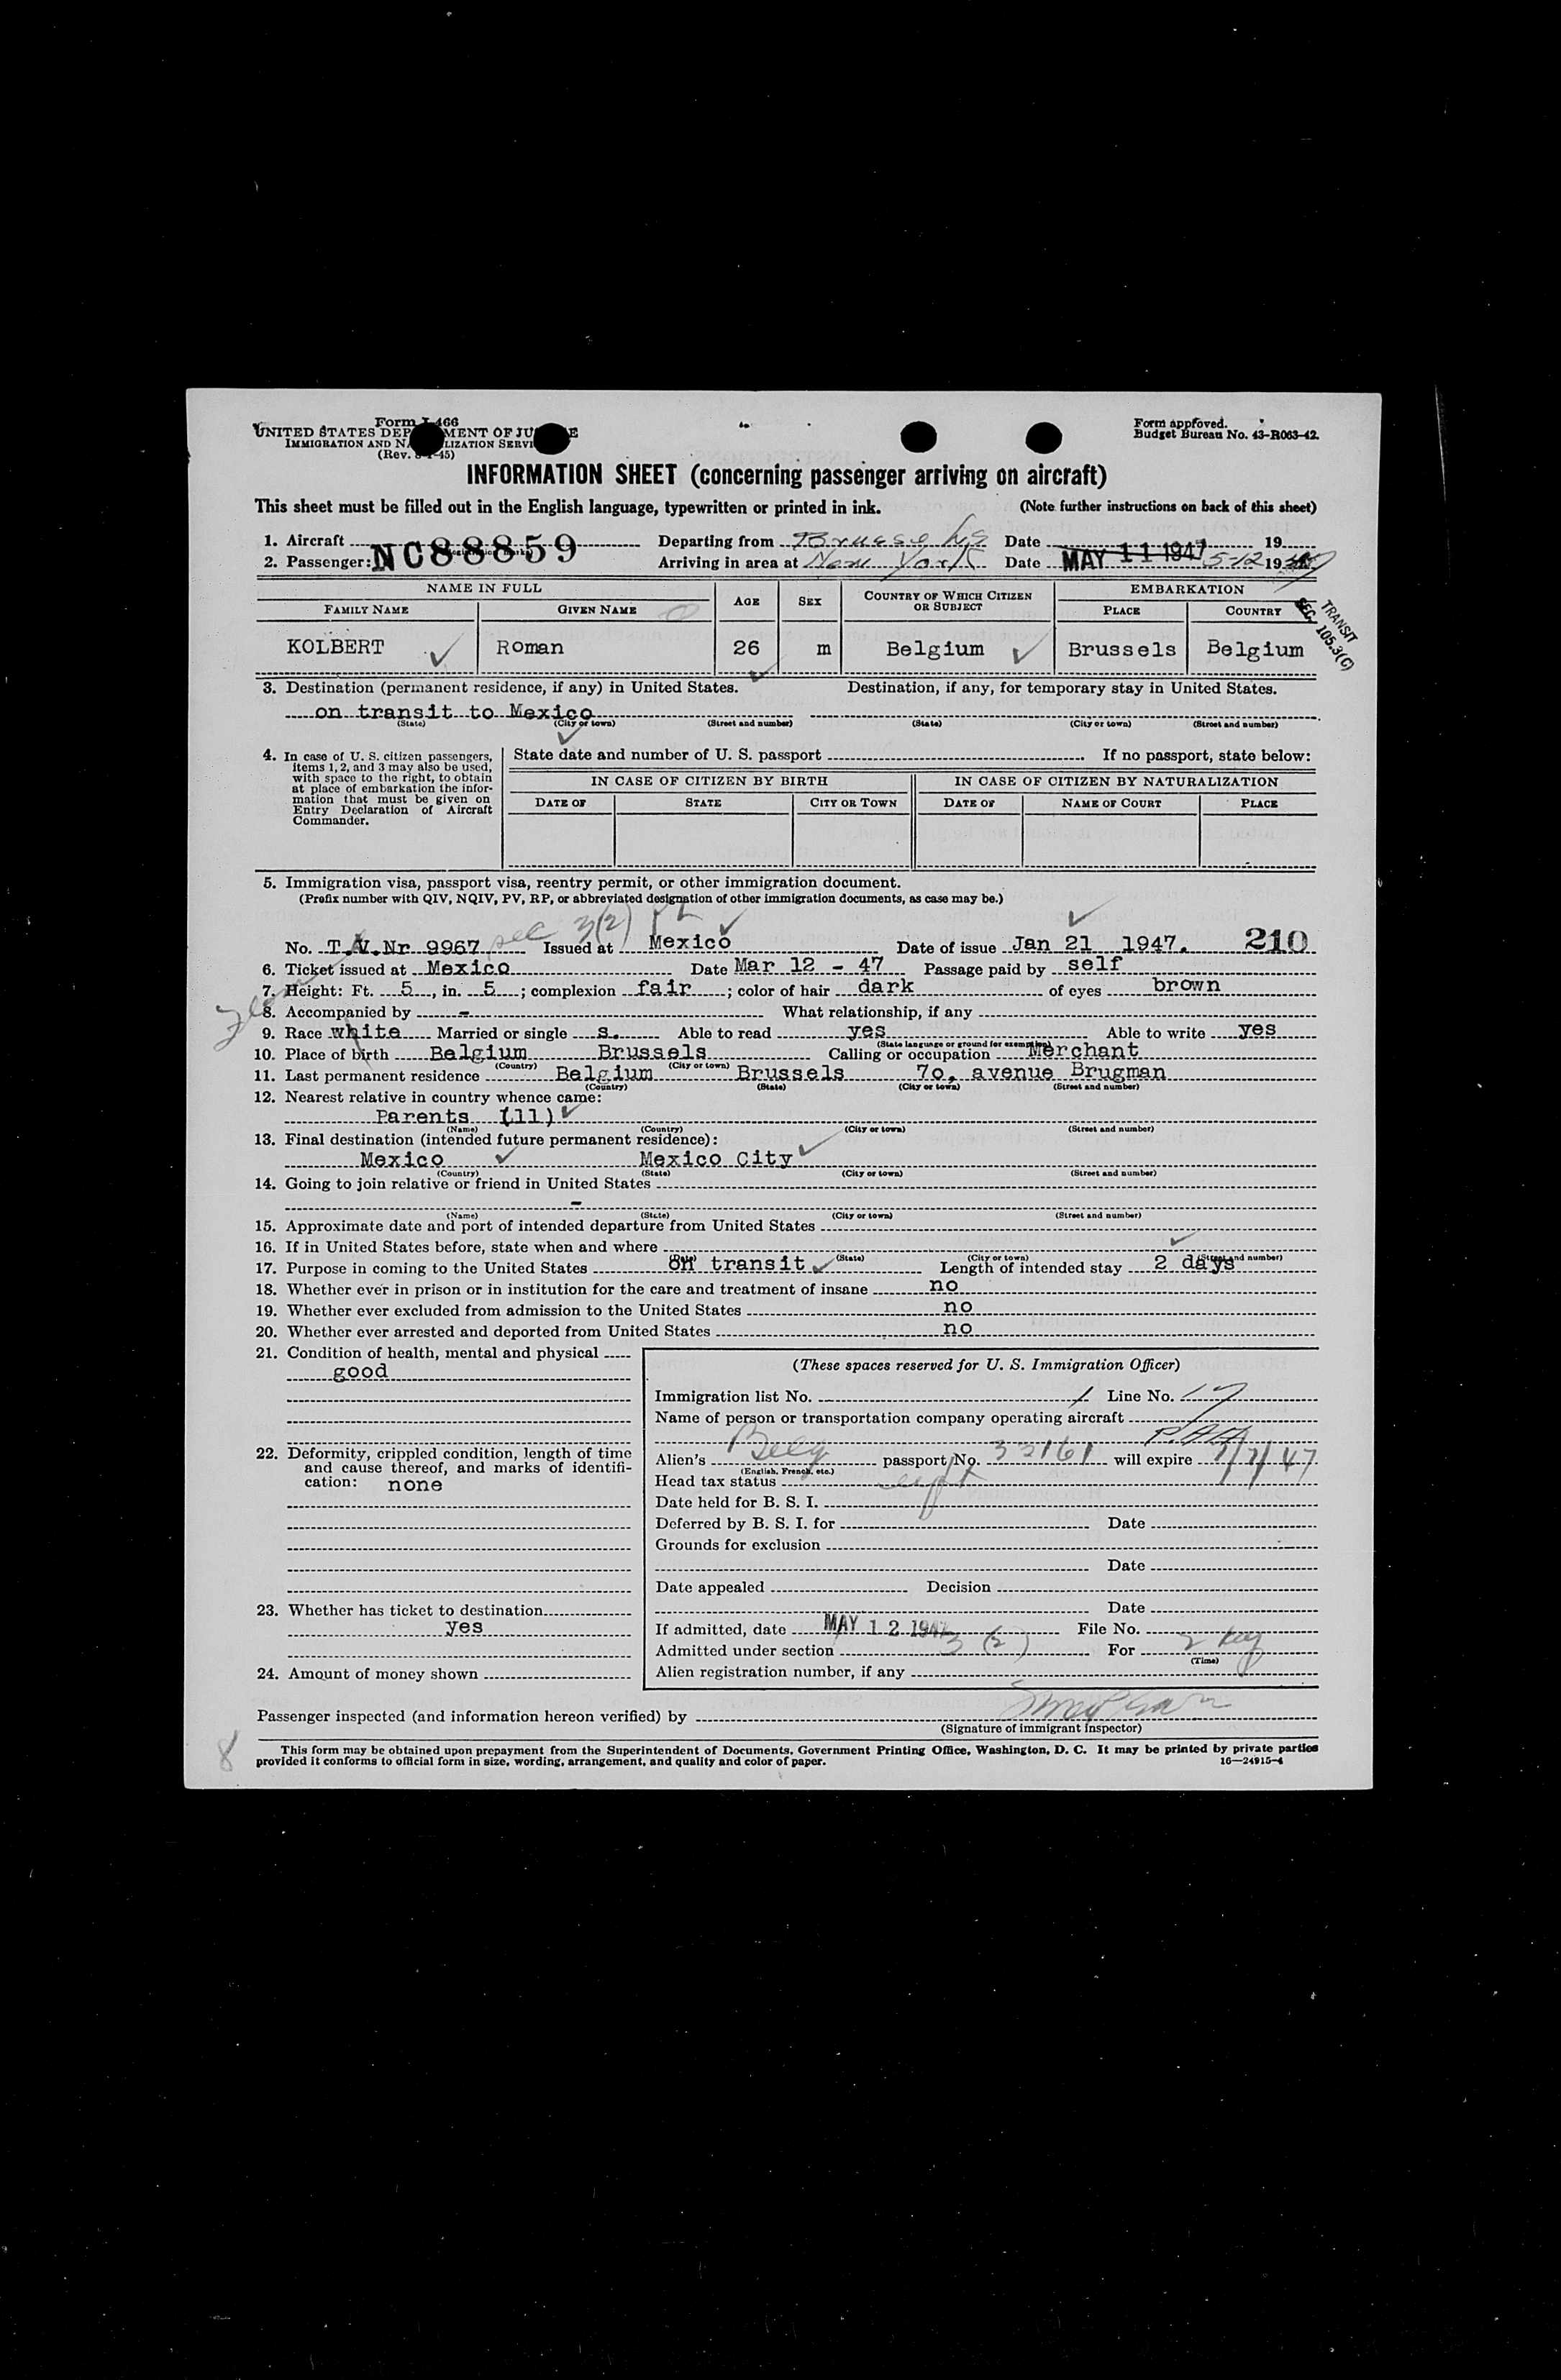 Form I-466
UNITED STATES DEPARTMENT OF JUSTICE
IMMIGRATION AND NATURALIZATION SERVICE
(Rev. 8-1-45)
Form approved.
Budget Bureau No. 43-R063-42.
INFORMATION SHEET (concerning passenger arriving on aircraft)
This sheet must be filled out in the English language, typewritten or printed in ink. (Note further instructions on back of this sheet)
1. Aircraft NC88859 Departing from Brussels Date 19
2. Passenger: Arriving in area at New York Date MAY 11 1947 5-12 1947
NAME IN FULL AGE SEX COUNTRY OF WHICH CITIZEN OR SUBJECT EMBARKATION
FAMILY NAME GIVEN NAME PLACE COUNTRY
TRANSIT
SEC. 105.3(C)
KOLBERT Roman 26 m Belgium Brussels Belgium
3. Destination (permanent residence, if any) in United States. Destination, if any, for temporary stay in United States.
on transit to Mexico
(State) (City or town) (Street and number) (State) (City or town) (Street and number)
4. In case of U. S. citizen passengers, items 1, 2, and 3 may also be used, with space to the right, to obtain at place of embarkation the information that must be given on Entry Declaration of Aircraft Commander.
State date and number of U. S. passport If no passport, state below:
IN CASE OF CITIZEN BY BIRTH IN CASE OF CITIZEN BY NATURALIZATION
DATE OF STATE CITY OR TOWN DATE OF NAME OF COURT PLACE
5. Immigration visa, passport visa, reentry permit, or other immigration document.
(Prefix number with QIV, NQIV, PV, RP, or abbreviated designation of other immigration documents, as case may be.)
sec 3(2)
No. T.V.Nr 9967 Issued at Mexico Date of issue Jan 21 1947. 210
6. Ticket issued at Mexico Date Mar 12 - 47 Passage paid by self
7. Height: Ft. 5, in. 5; complexion fair; color of hair dark of eyes brown
8. Accompanied by - What relationship, if any
9. Race white Married or single s. Able to read yes Able to write yes
(State language or ground for exemption)
10. Place of birth Belgium Brussels Calling or occupation Merchant
(Country) (City or town)
11. Last permanent residence Belgium Brussels 7o, avenue Brugman
(Country) (State) (City or town) (Street and number)
12. Nearest relative in country whence came:
Parents (11)
(Name) (Country) (City or town) (Street and number)
13. Final destination (intended future permanent residence):
Mexico Mexico City
(Country) (State) (City or town) (Street and number)
14. Going to join relative or friend in United States
-
(Name) (State) (City or town) (Street and number)
15. Approximate date and port of intended departure from United States
16. If in United States before, state when and where
(Date) (State) (City or town) (Street and number)
17. Purpose in coming to the United States on transit Length of intended stay 2 days
18. Whether ever in prison or in institution for the care and treatment of insane no
19. Whether ever excluded from admission to the United States no
20. Whether ever arrested and deported from United States no
21. Condition of health, mental and physical
good
22. Deformity, crippled condition, length of time and cause thereof, and marks of identification: none
23. Whether has ticket to destination
yes
24. Amount of money shown
(These spaces reserved for U. S. Immigration Officer)
Immigration list No. 1 Line No. 17
Name of person or transportation company operating aircraft
P.A.A.
Alien's Belg passport No. 33161 will expire 7/7/47
(English, French, etc.)
Head tax status
Date held for B. S. I.
Deferred by B. S. I. for Date
Grounds for exclusion
Date
Date appealed Decision
Date
If admitted, date MAY 12 1947 File No.
Admitted under section 3 (2) For 2
(Time)
Alien registration number, if any
Passenger inspected (and information hereon verified) by
(Signature of immigrant inspector)
8
This form may be obtained upon prepayment from the Superintendent of Documents, Government Printing Office, Washington, D. C. It may be printed by private parties
provided it conforms to official form in size, wording, arrangement, and quality and color of paper. 16—24915-4